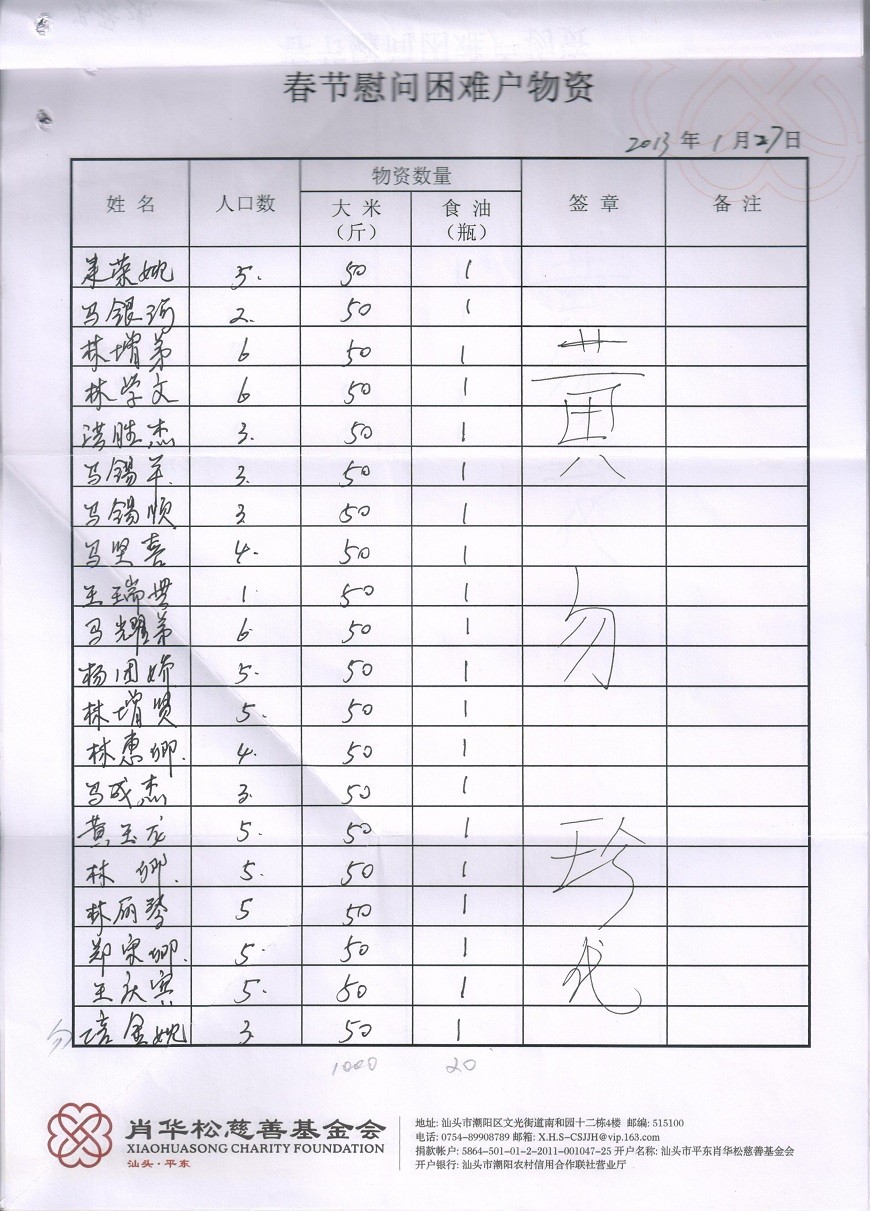 春节慰问困难户物资
2013年1月27日
姓名 人口数 物资数量 签章 备注
大米（斤） 食油（瓶）
荣婉 5. 50 1
马银河 2. 50 1
林增弟 6 50 1
林学文 6 50 1
洪胜杰 3. 50 1
马锡羊 3. 50 1
马锡顺 3 50 1
马坚喜 4. 50 1
王瑞 1. 50 1
马耀弟 6. 50 1
杨团娇 5. 50 1
林增贤 5. 50 1
林惠卿. 4. 50 1
马成杰 3. 50 1
黄玉龙 5. 50 1
林卿. 5. 50 1
林丽琴 5 50 1
郑宋卿. 5. 50 1
王庆宾 5. 50 1
金婉 3 50 1
黄勿珍代
1000 20
肖华松慈善基金会
XIAOHUASONG CHARITY FOUNDATION
汕头·平东
地址: 汕头市潮阳区文光街道南和园十二栋4楼 邮编: 515100
电话: 0754-89908789 邮箱: X.H.S-CSJJH@vip.163.com
捐款帐户: 5864-501-01-2-2011-001047-25 开户名称: 汕头市平东肖华松慈善基金会
开户银行: 汕头市潮阳农村信用合作联社营业厅